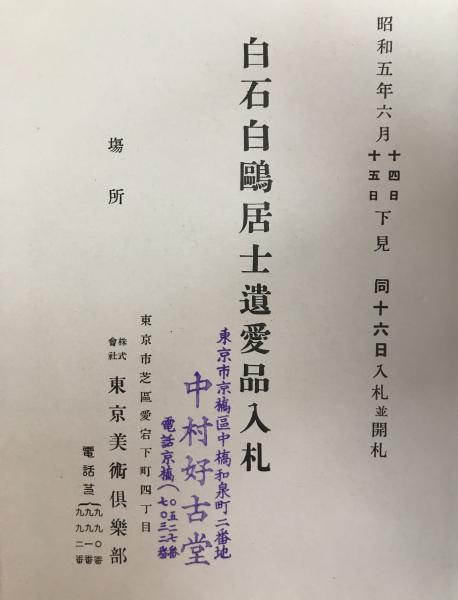 昭和五年六月十四日十五日下見 同十六日入札並開札
白石白鷗居士遺愛品入札
東京市京橋區中橋和泉町二番地
中村好古堂
電話京橋(〇五二七番
七〇三二番
場所
東京市芝區愛宕下町四丁目
株式會社 東京美術倶樂部
電話芝(九九〇番
九九一番
九九二番